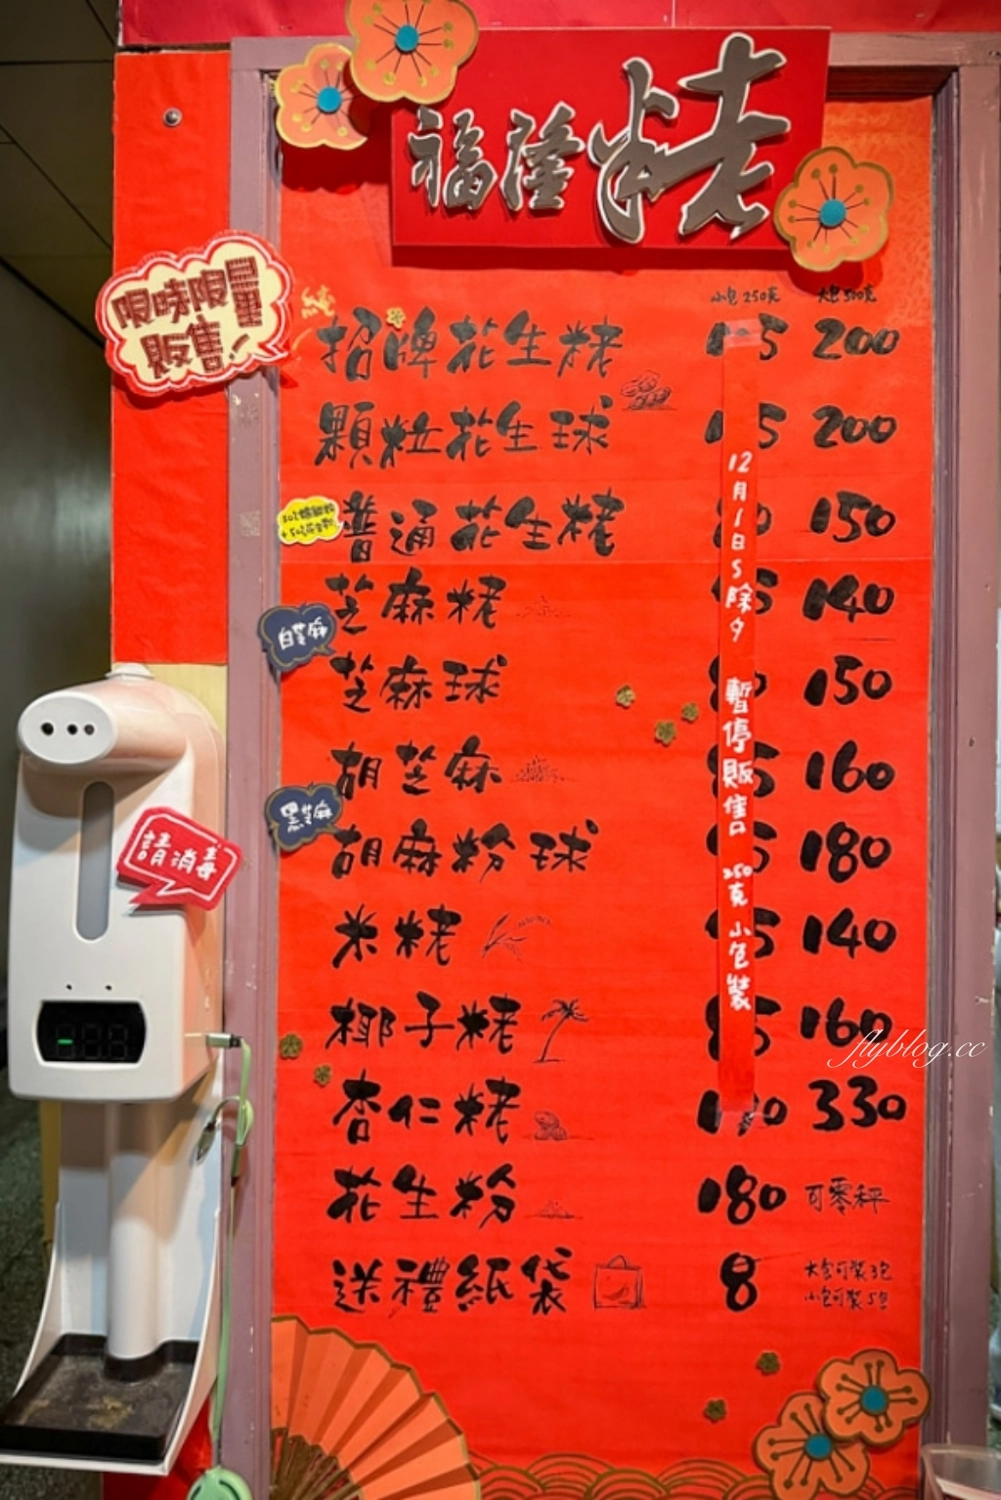 福隆粩
限時限量
販售!
小包250克 大包500克
純
招牌花生粩 200
顆粒花生球 200
普通花生粩 150
芝麻粩 140
白芝麻
芝麻球 150
胡芝麻 160
黑芝麻
胡麻粉球 180
米粩 140
椰子粩 160
杏仁粩 330
花生粉 180 可零秤
送禮紙袋 8 大包可裝3包
小包可裝5包
12月1日S除夕 暫停販售 250克小包裝
請消毒
flyblog.cc